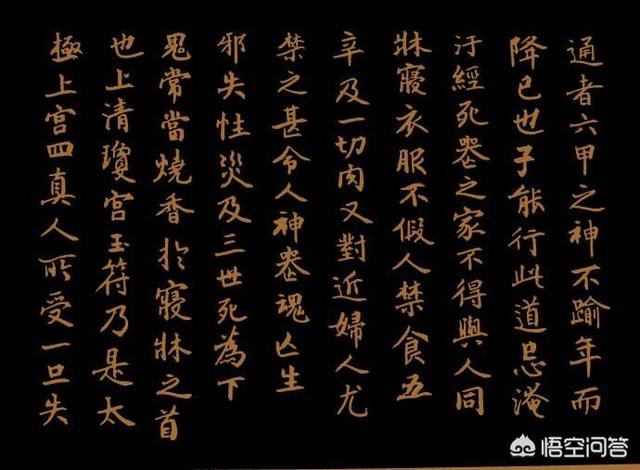 通者六甲之神不踰年而
降已也子能行此道忌淹
汙經死喪之家不得與人同
牀寢衣服不假人禁食五
辛及一切肉又對近婦人尤
禁之甚令人神喪魂亡生
邪失性災及三世死為下
鬼常當燒香於寢牀之首
也上清瓊宮玉符乃是太
極上宮四真人所受一旦失
悟空问答